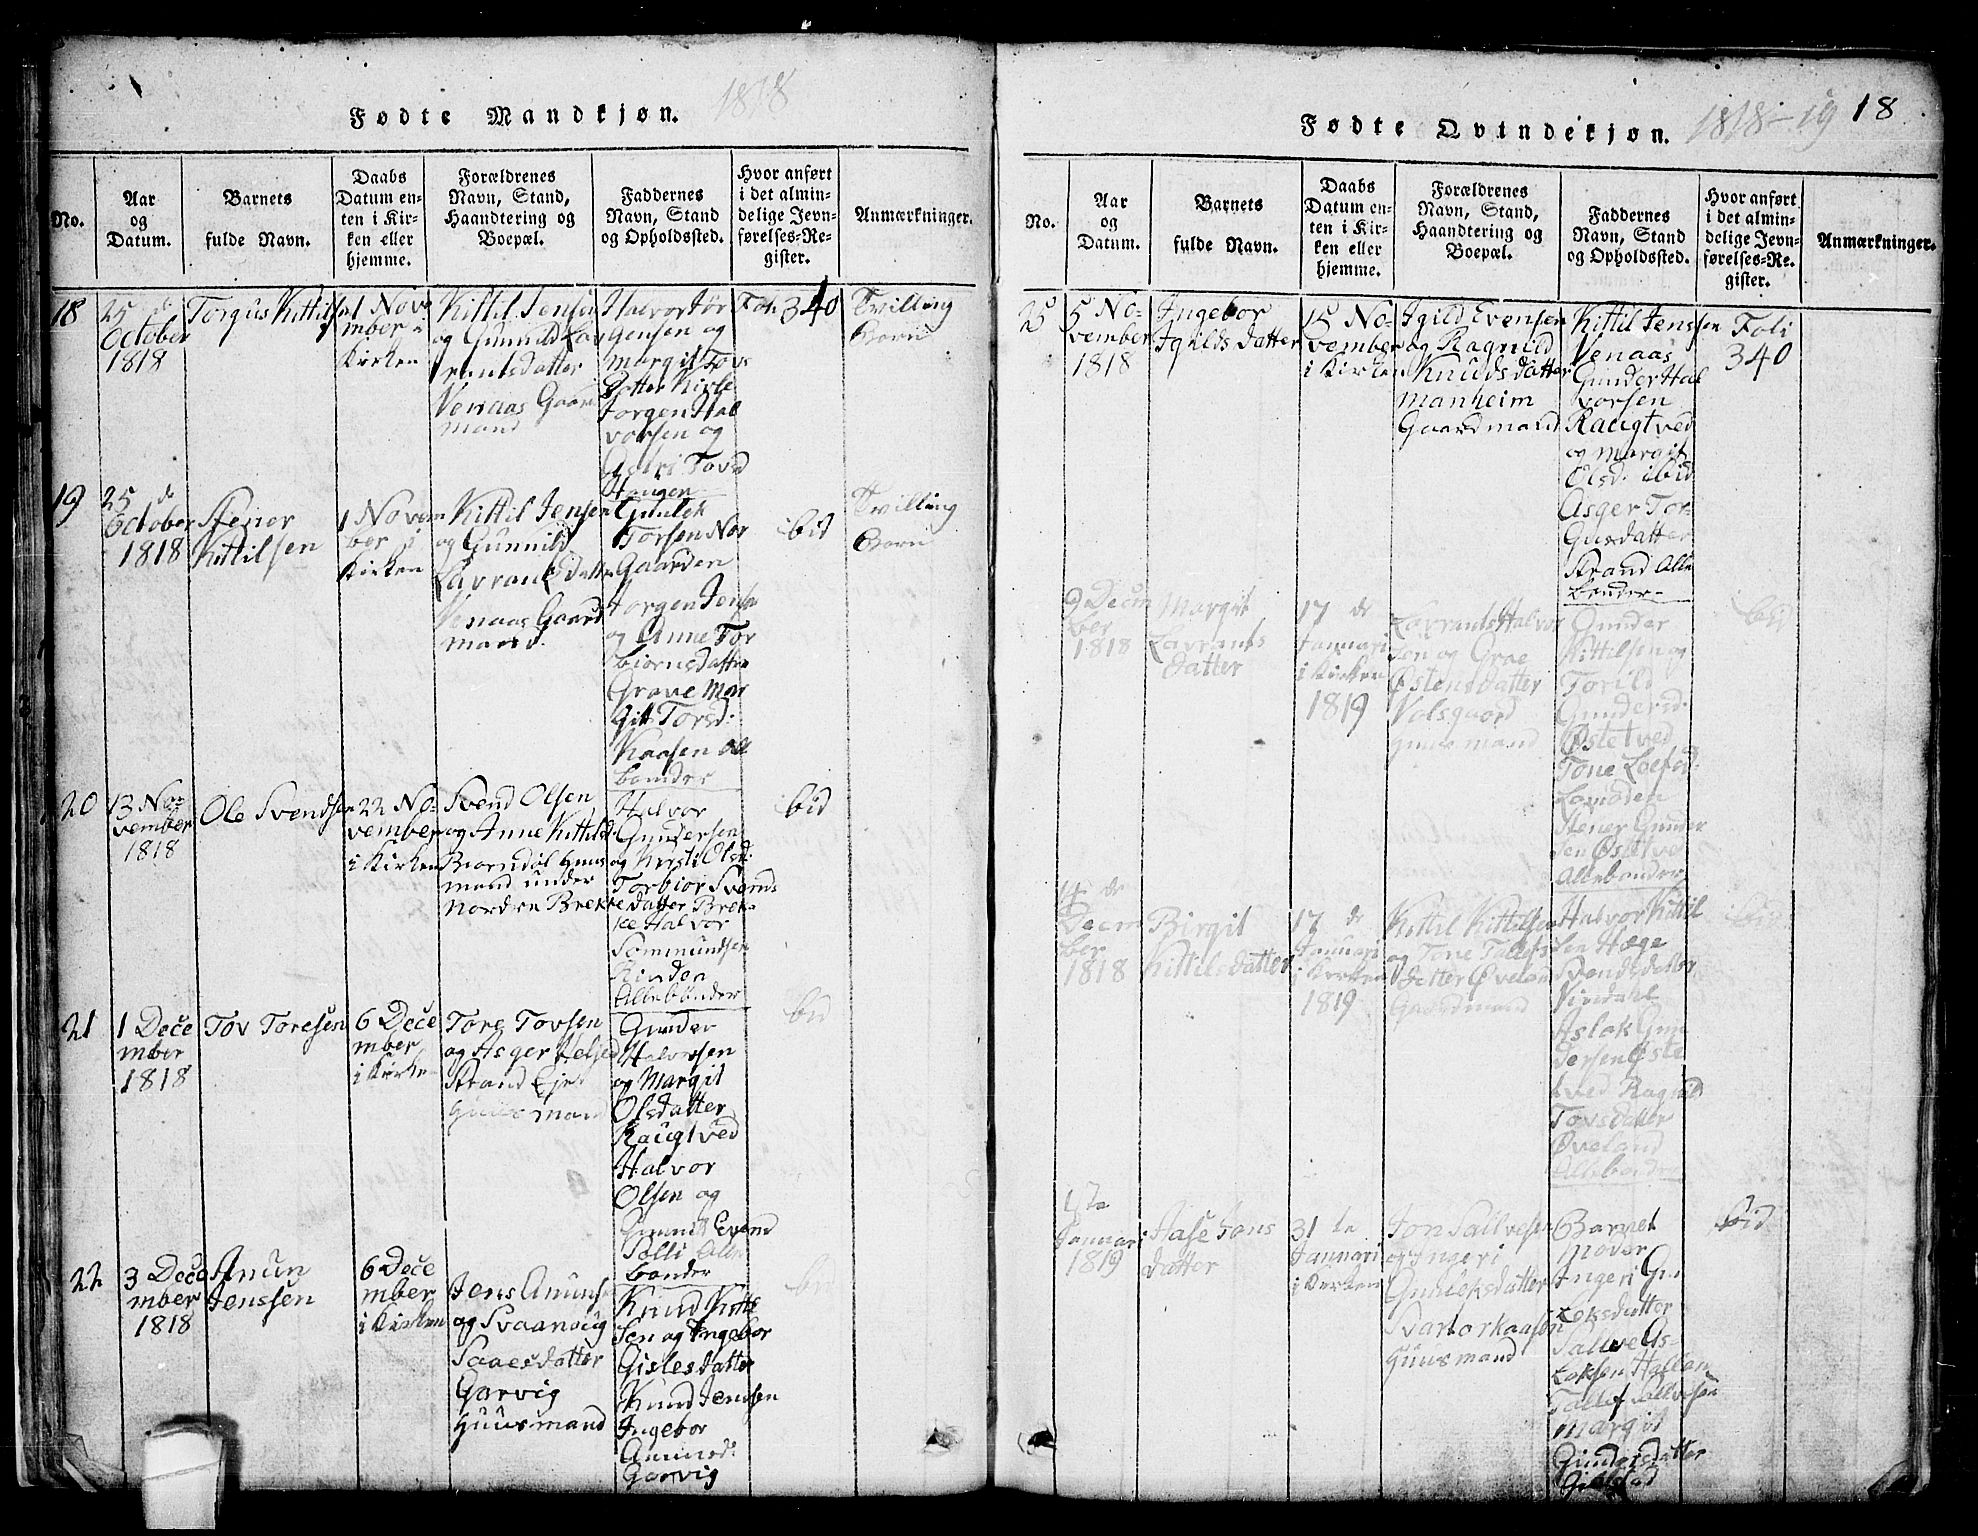 Fødte Mandkjøn. 1818
No.
Aar
og
Datum.
Barnets
fulde Navn.
Daabs
Datum en-
ten i Kir-
ken eller
hjemme.
Forældrenes
Navn, Stand,
Haandtering og
Boepæl.
Faddernes
Navn, Stand
og Opholdssted.
Hvor anført
i det almin-
delige Jevn-
førelses-Re-
gister.
Anmærkninger.
18
25 de
October
1818
Torgus Kittilsen
1 Nove
mber i
Kirken
Kittil Jensen
og Gunnild Lav
rantsdatter
Venaas Gaard
mand
Halvor Jør
gensen og
Margit Tovs
Dotter
Jorgen Hal
vorsen og
Astri Tovsd
Haugen
Foli 340
Tvilling
Born
19
25 de
October
1818
Stener
Kittilsen
1 Novem
ber i
Kirken
Kittil Jensen
og Gunnild
Lavrantsdatter
Venaas Gaard
mand
Gunlek
Torsen Nor
Gaarden
Jorgen Jensen
og Anne Tor
biornsdatter
Grave Mar
git Torsd:
Kaasen Alle
bønder
ibid
Tvilling
Born
20
13 No-
vember
1818
Ole Svendsen
22 No-
vember
i Kirken
Svend Olsen
og Anne Kittilsd:
Biorndal Huus
mand under
Nordre Brekke
Halvor
Gundersen
og Kersti Olsd:
Torbior Svend-
sdatter Brek-
ke Halvor
Sommundsen
Rindea
Allebønder
ibid
21
1 Dece
mber
1818
Tov Toresen
6 Dece
mber
i Kirken
Tore Tovsen
og Asger Nelsd
Strand Eje
Huusmand
Gunder
Halvorsen
og Margit
Olsdatter
Raugtved
Halvor
Olsen og
Gunnil Evensd
Solli Alle
bønder
ibid
22
3 Dece
mber
1818
Anun
Jenssen
6 Dece
mber
i Kirken
Jens Anunse
og Svaanoug
Saaesdatter
Garvig
Huusmand
Knud Kitti
sen og Ingebor
Gislesdatter
Knud Jensen
Ingebor
Anunsd:
Garvig
Fødte Qvindekjøn. 1818-19 18
No.
Aar
og
Datum.
Barnets
fulde Navn.
Daabs
Datum en-
ten i Kir-
ken eller
hjemme.
Forældrenes
Navn, Stand,
Haandtering og
Boepæl.
Faddernes
Navn, Stand
og Opholdssted.
Hvor anført
i det almin-
delige Jevn-
førelses-Re-
gister.
Anmærkninger.
25
5 No-
vember
1818
Ingebor
Igildsdatter
15 No-
vember
i Kirken
Igild Evensen
og Ragnild
Knudsdatter
Manheim
Gaardmand
Kittil Jenssen
Venaas
Gunder Hal
vorsen
Raugtved
og Margit
Olsd: ibid
Asger Tor-
Gusdatter
Strand Alle
bønder
Foli
340
9 Decm
ber
1818
Margit
Lavrants
datter
17 de
Januari
i Kirken
1819
Lavrants Halvor
sen og Groe
Østensdatter
Valsgaard
Huusmand
Gunder
Kittilsen og
Torild
Gundersd:
Østetved
Tone Loefsd:
Stener Gunder
sen Østetved
Allebønder
ibid
14 de
Decm
ber
1818
Birgit
Kittilsdatter
17 de
Januari
i Kirken
1819
Kittil Kittilsen
og Tone Tallefs
datter Øveland
Gaardmand
Halvor Kittil
sen Hæge
Svendsdatter
Vindahl
Aslak Gun
dersen Øste
tved Ragnil
Tovsdatter
Øveland
Allebønder
ibid
1 te
Januari
1819
Aase Jons
datter
31 te
Januari
i Kirken
Jon Sallvesen
og Ingeri
Gunleksdatter
Svartorkaasen
Huusmand
Barnet
Moder
Ingeri Gu
leksdatter
Sallve As-
laksen Hallan
Tallef Sallvesen
Margit
Gundersdatter
ibid